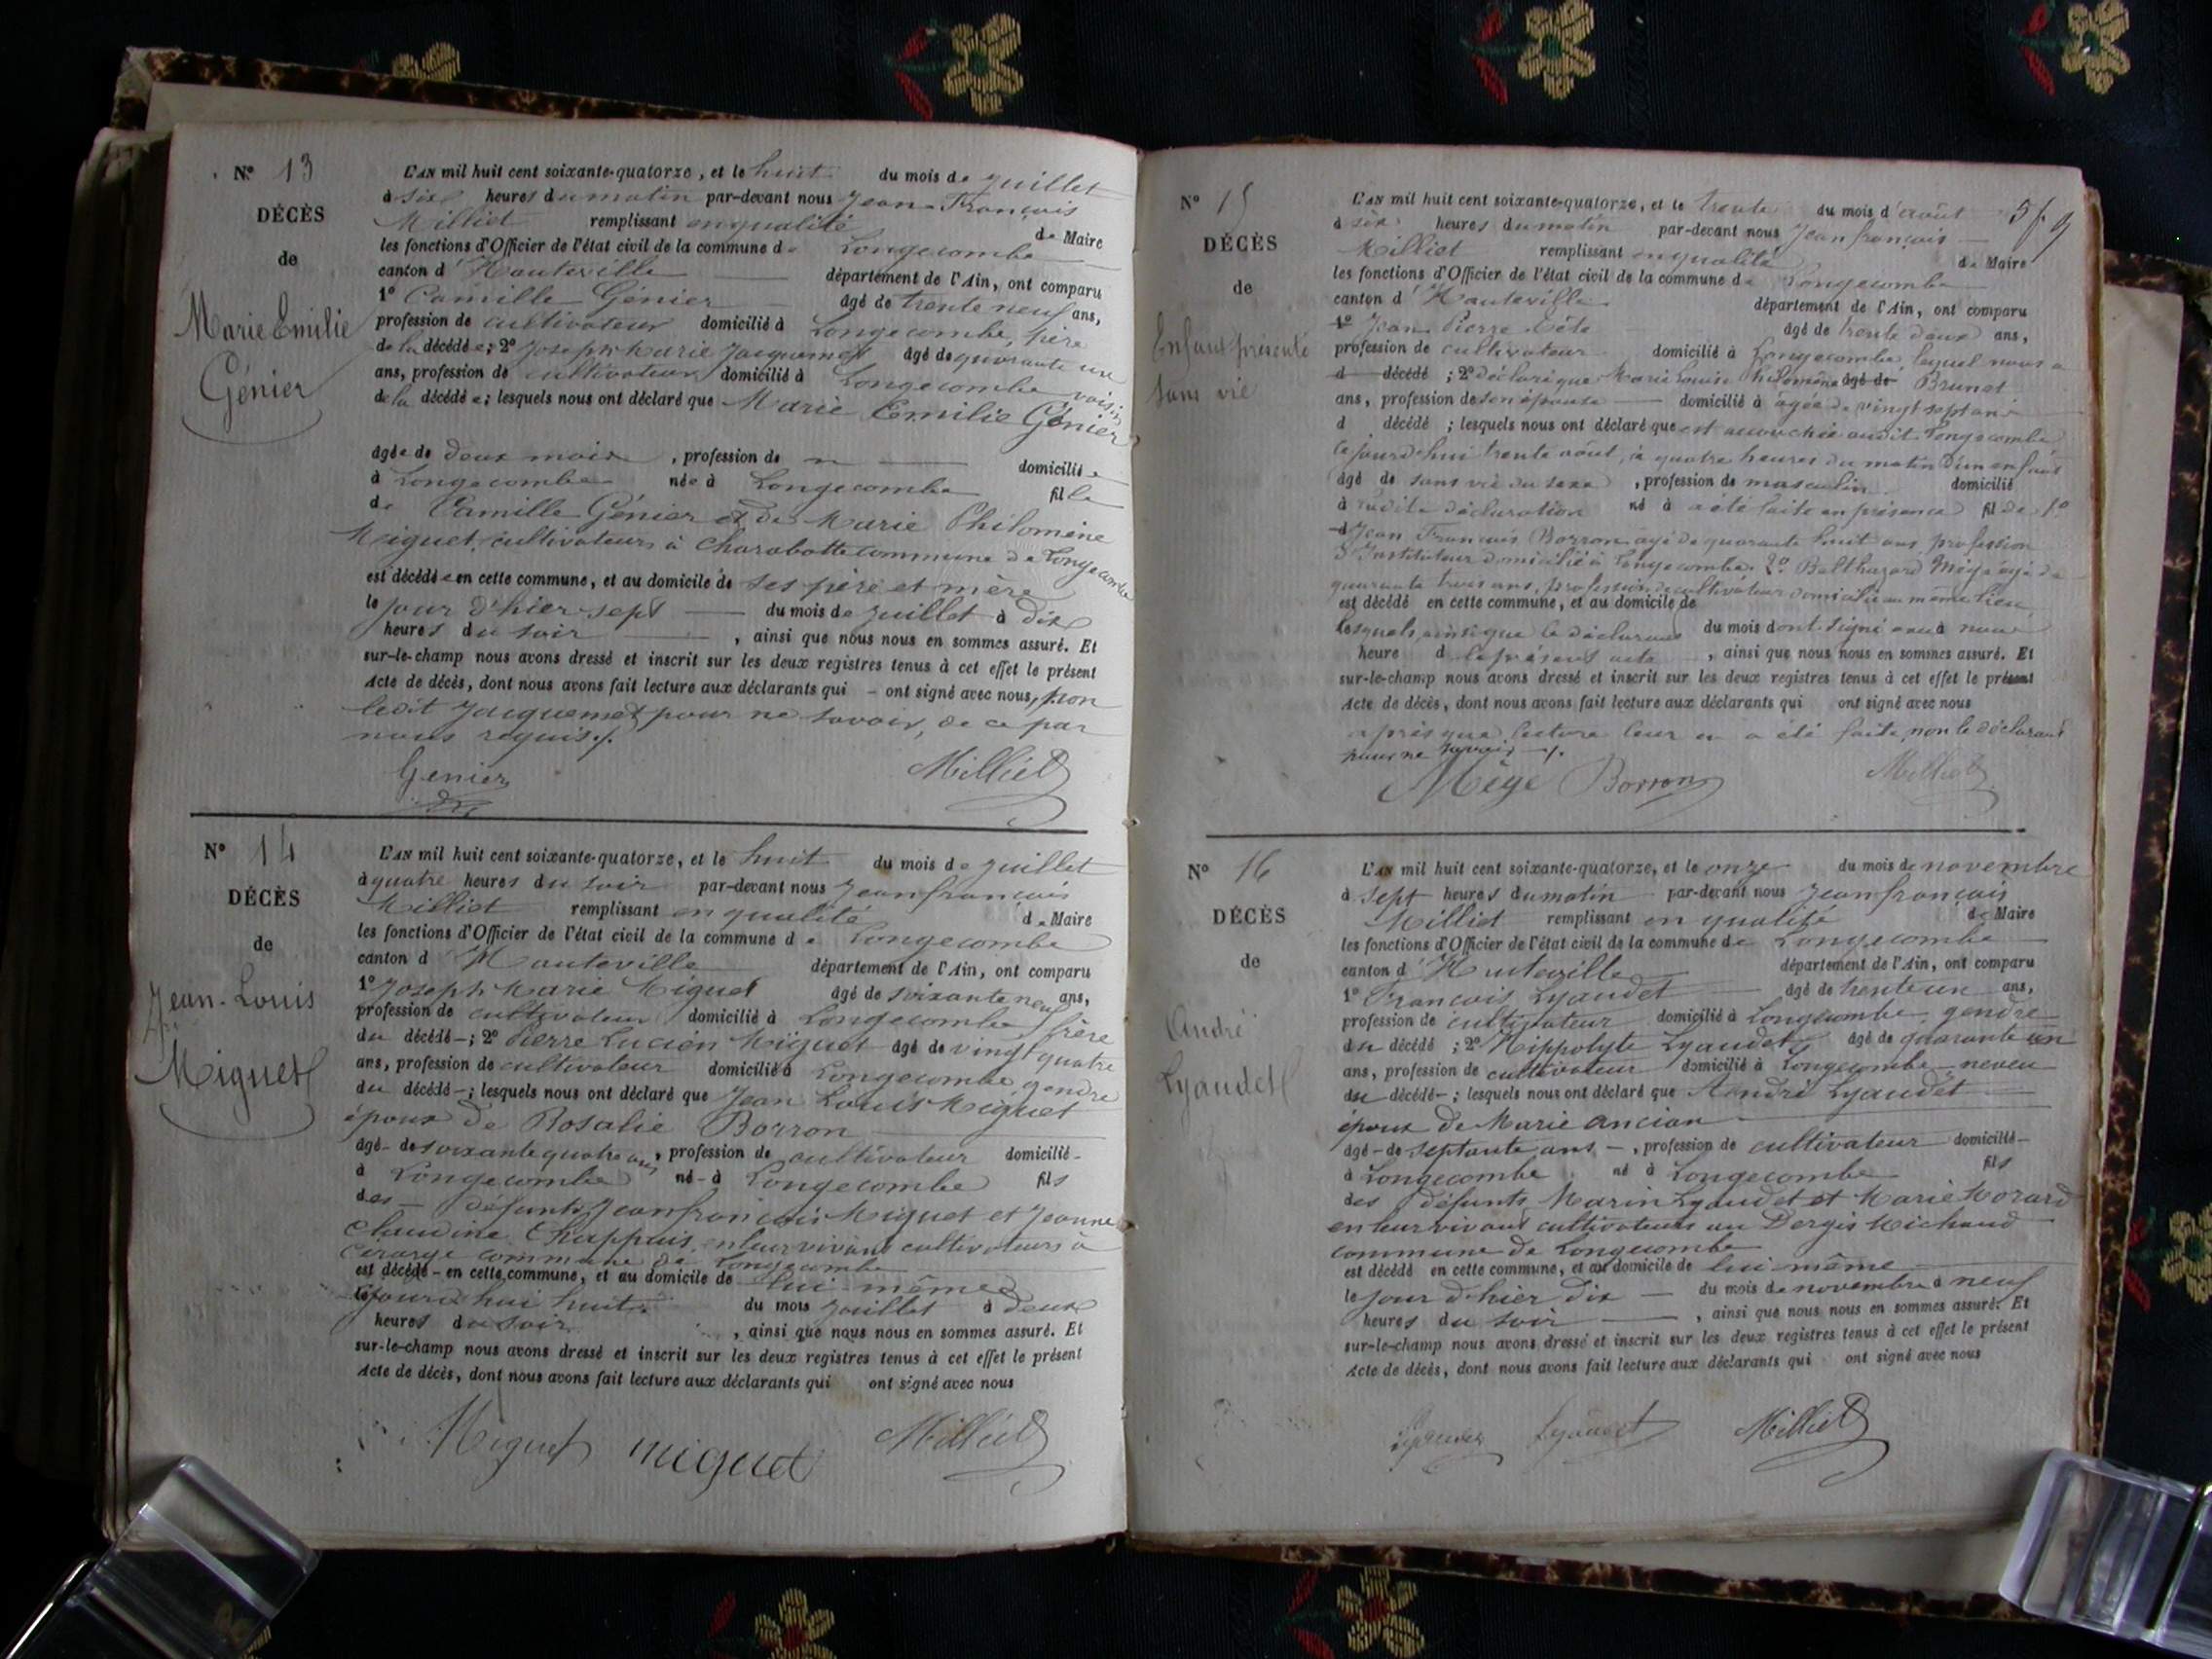 N° 13
DÉCÈS
de
Marie Emilie
Génier
L'AN mil huit cent soixante-quatorze, et le huit du mois de juillet
à six heures du matin par-devant nous Jean-François
Milliet remplissant en qualité de Maire
les fonctions d'Officier de l'état civil de la commune de Longecombe
canton d'Hauteville département de l'Ain, ont comparu
1° Camille Génier âgé de trente neuf ans,
profession de cultivateur domicilié à Longecombe, père
de la décédée; 2° Joseph Marie Jacquemet âgé de quarante un
ans, profession de cultivateur domicilié à Longecombe voisin
de la décédée; lesquels nous ont déclaré que Marie Emilie Génier
âgée de deux mois, profession de domiciliée
à Longecombe née à Longecombe fille
de Camille Génier et de Marie Philomène
Miguet, cultivateurs à Charabotte commune de Longecombe
est décédée en cette commune, et au domicile de ses père et mère
le jour d'hier sept du mois de juillet à dix
heures du soir, ainsi que nous nous en sommes assuré. Et
sur-le-champ nous avons dressé et inscrit sur les deux registres tenus à cet effet le présent
Acte de décès, dont nous avons fait lecture aux déclarants qui - ont signé avec nous, non
ledit Jacquemet pour ne savoir, de ce par
nous requis./.
Genier Milliet
N° 14
DÉCÈS
de
Jean-Louis
Miguet
L'AN mil huit cent soixante-quatorze, et le huit du mois de juillet
à quatre heures du soir par-devant nous Jean françois
Milliet remplissant en qualité de Maire
les fonctions d'Officier de l'état civil de la commune de Longecombe
canton d'Hauteville département de l'Ain, ont comparu
1° Joseph Marie Miguet âgé de soixante neuf ans,
profession de cultivateur domicilié à Longecombe, frère
du décédé-; 2° Pierre Lucien Miguet âgé de vingt quatre
ans, profession de cultivateur domicilié à Longecombe gendre
du décédé-; lesquels nous ont déclaré que Jean Louis Miguet
époux de Rosalie Borron
âgé- de soixante quatre ans, profession de cultivateur domicilié-
à Longecombe né- à Longecombe fils
des défunts Jean françois Miguet et Jeanne
Claudine Chappuis, en leur vivant cultivateurs à
commune de Longecombe
est décédé - en cette commune, et au domicile de lui même
aujourd'hui huit du mois juillet à deux
heures du soir, ainsi que nous nous en sommes assuré. Et
sur-le-champ nous avons dressé et inscrit sur les deux registres tenus à cet effet le présent
Acte de décès, dont nous avons fait lecture aux déclarants qui ont signé avec nous
Miguet miguet Milliet
N° 15
DÉCÈS
de
Enfant présenté
sans vie
L'AN mil huit cent soixante-quatorze, et le trente du mois d'août
à six heures du matin par-devant nous Jean françois
Milliet remplissant en qualité de Maire
les fonctions d'Officier de l'état civil de la commune de Longecombe
canton d'Hauteville département de l'Ain, ont comparu
1° Jean Pierre âgé de trente deux ans,
profession de cultivateur domicilié à Longecombe, lequel nous a
d décédé ; 2° déclaré que Marie Louise Philomène âgé de Brunet
ans, profession de son épouse domicilié à âgée de vingt sept ans
d décédé ; lesquels nous ont déclaré que est accouchée audit Longecombe
ce jourd'hui trente août, à quatre heures du matin d'un enfant
âgé de sans vie du sexe, profession de masculin domicilié
à ladite déclaration né à a été faite en présence fil de 1°
d Jean François Borron, âgé de quarante huit ans profession
d'Instituteur domicilié à Longecombe. 2° Balthazard Mège âgé de
quarante trois ans, profession de cultivateur domicilié au même lieu
est décédé en cette commune, et au domicile de
lesquels, ainsi que le déclarant du mois d ont signé avec à nous
heure d le présent acte, ainsi que nous nous en sommes assuré. Et
sur-le-champ nous avons dressé et inscrit sur les deux registres tenus à cet effet le présent
Acte de décès, dont nous avons fait lecture aux déclarants qui ont signé avec nous
après que lecture leur en a été faite, non le déclarant
pour ne savoir -/.
Mège Borron Milliet
N° 16
DÉCÈS
de
André
Lyaudet
L'AN mil huit cent soixante-quatorze, et le onze du mois de novembre
à sept heures du matin par-devant nous Jean françois
Milliet remplissant en qualité de Maire
les fonctions d'Officier de l'état civil de la commune de Longecombe
canton d'Hauteville département de l'Ain, ont comparu
1° François Lyaudet âgé de trente un ans,
profession de cultivateur domicilié à Longecombe, gendre
du décédé ; 2° Hippolyte Lyaudet âgé de quarante un
ans, profession de cultivateur domicilié à Longecombe, neveu
du décédé-; lesquels nous ont déclaré que André Lyaudet
époux de Marie Ancian
âgé - de septante ans -, profession de cultivateur domicilié-
à Longecombe né à Longecombe fils
des défunts Marin Lyaudet et Marie Morard
en leur vivant cultivateurs au Dergis Michaud
commune de Longecombe
est décédé en cette commune, et au domicile de lui même
le jour d'hier dix du mois de novembre à neuf
heures du soir, ainsi que nous nous en sommes assuré. Et
sur-le-champ nous avons dressé et inscrit sur les deux registres tenus à cet effet le présent
Acte de décès, dont nous avons fait lecture aux déclarants qui ont signé avec nous
Lyaudet Lyaudet Milliet